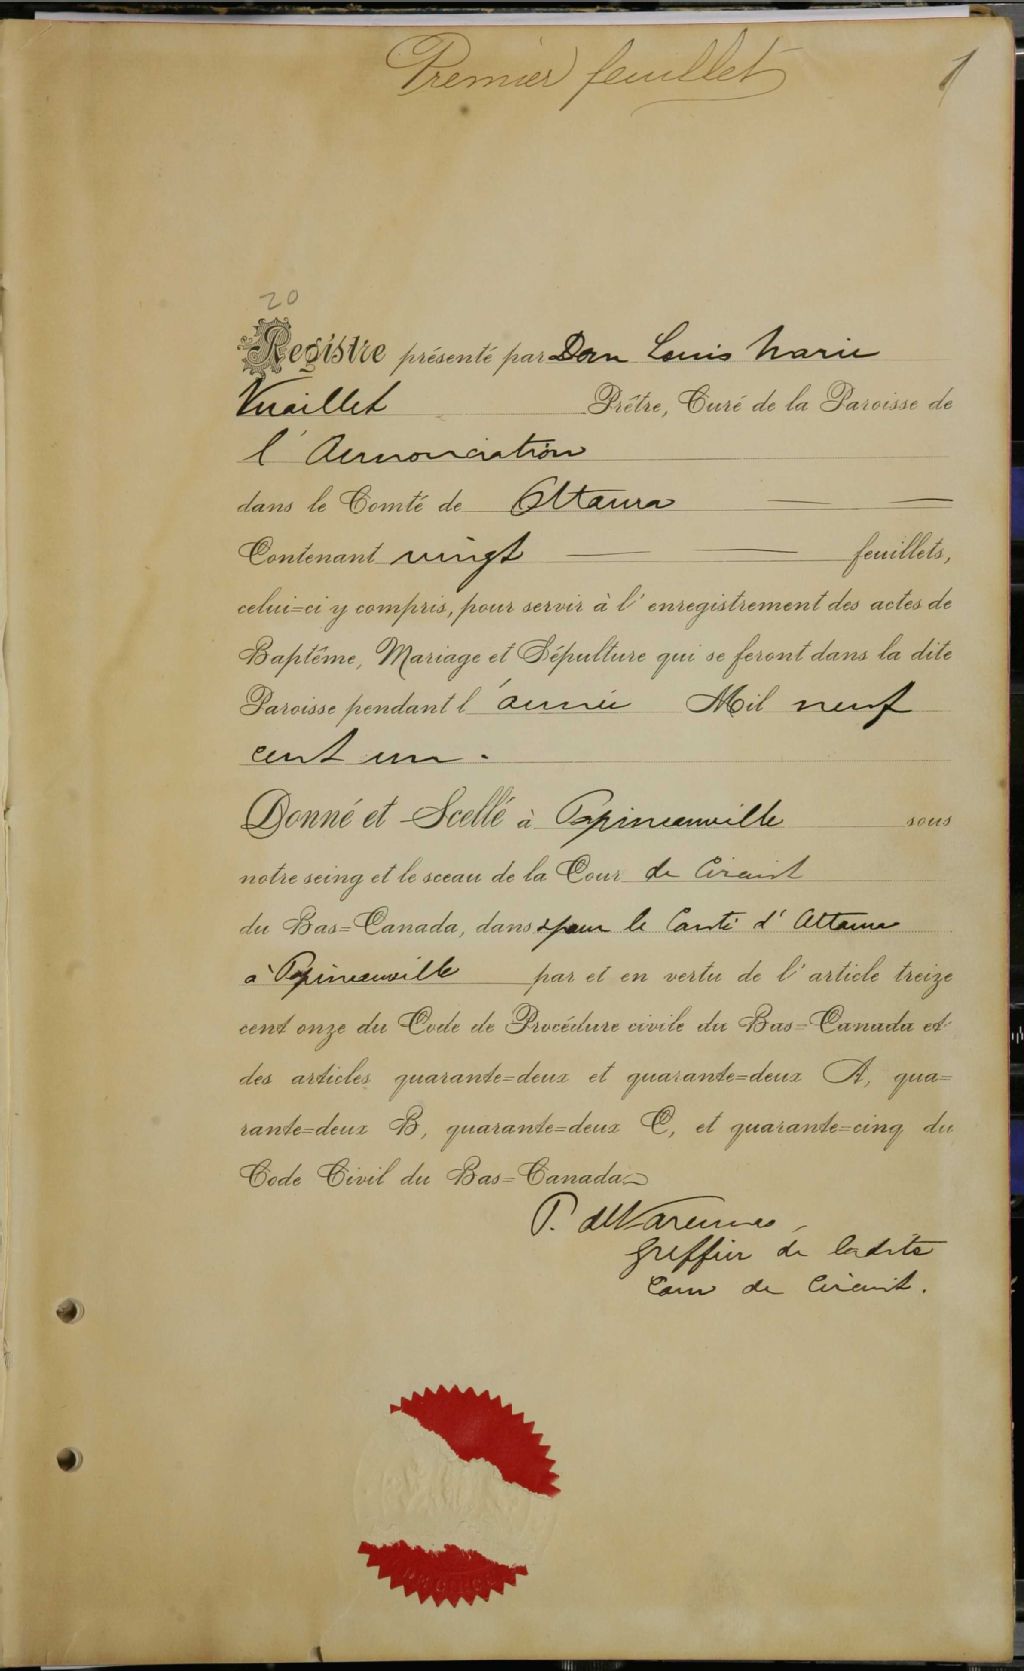 Premier feuillet
1
20
Registre présenté par Dom Louis Marie
Vuaillet Prêtre, Curé de la Paroisse de
l'Annonciation
dans le Comté de Ottawa
Contenant vingt feuillets,
celui=ci y compris, pour servir à l'enregistrement des actes de
Baptême, Mariage et Sépulture qui se feront dans la dite
Paroisse pendant l'année Mil neuf
cent un.
Donné et Scellé à Papineauville sous
notre seing et le sceau de la Cour de Circuit
du Bas=Canada, dans & pour le Comté d'Ottawa
à Papineauville par et en vertu de l'article treize
cent onze du Code de Procédure civile du Bas=Canada et
des articles quarante=deux et quarante=deux A, qua=
rante=deux B, quarante=deux C, et quarante=cinq du
Code Civil du Bas=Canada.
P. deVarennes,
Greffier de la dite
Cour de Circuit.